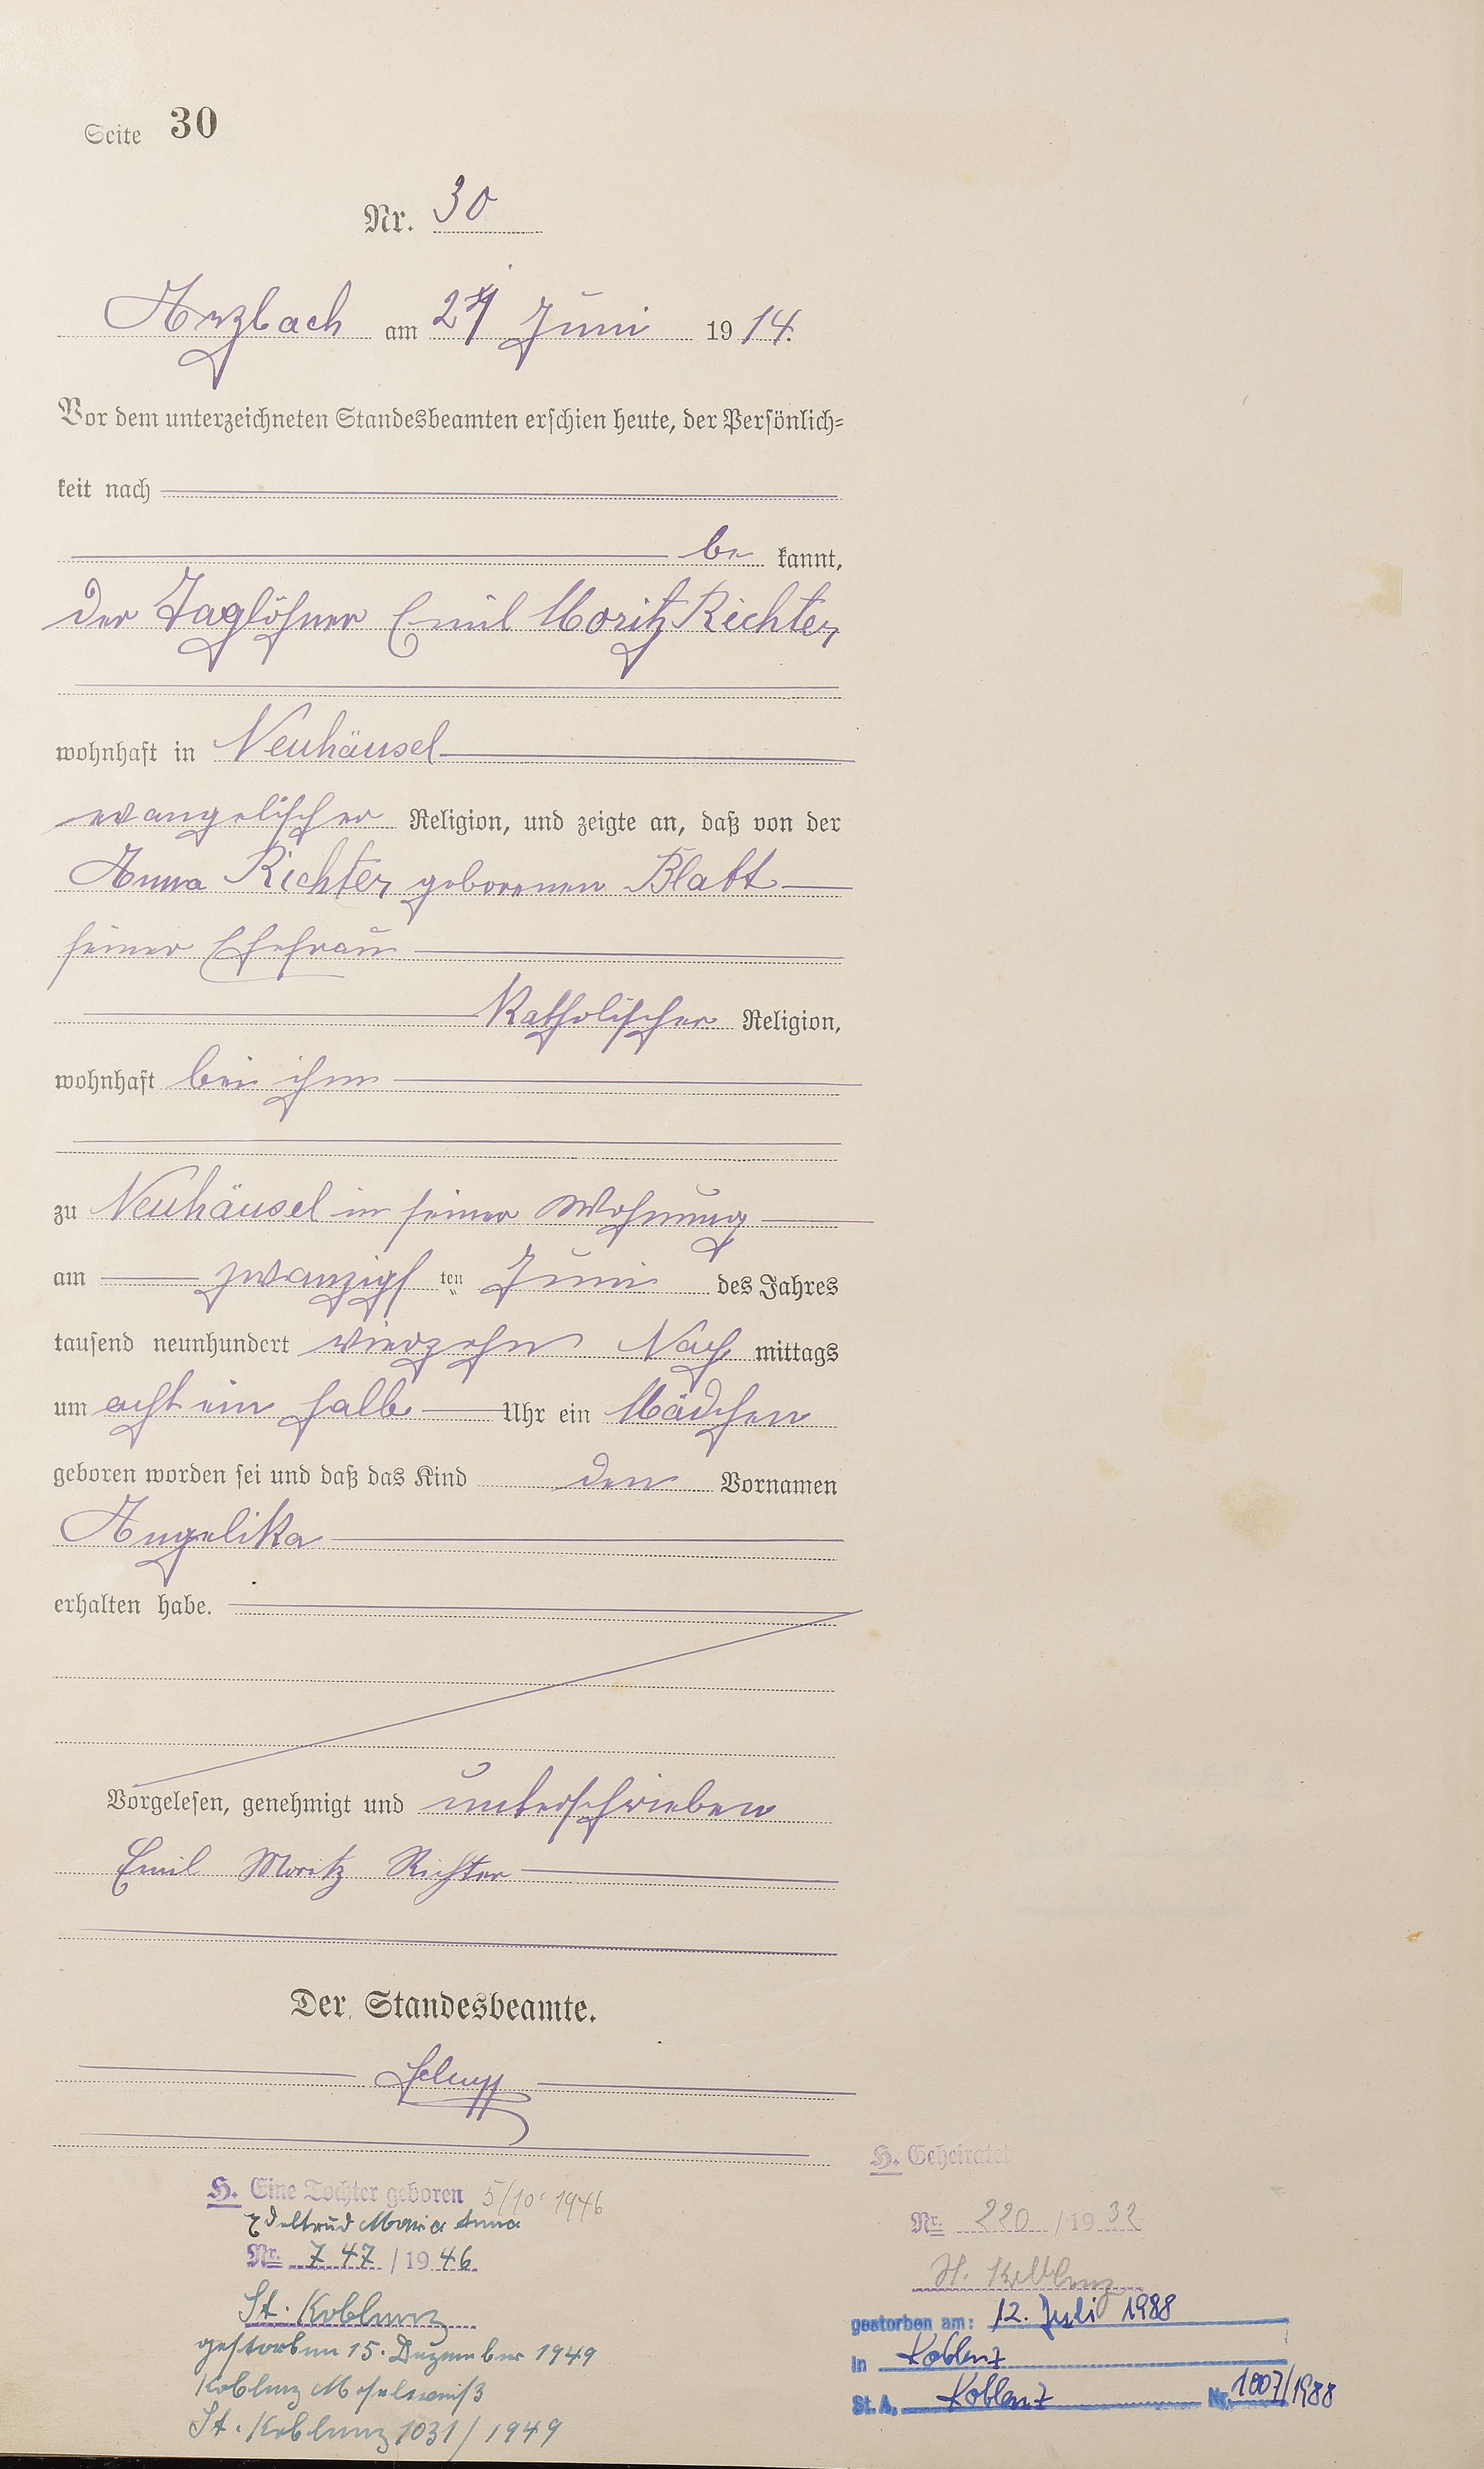 Seite 30
Nr. 30
Arzbach am 24 Juni 1914.
Vor dem unterzeichneten Standesbeamten erschien heute, der Persönlich-
keit nach
be kannt,
der Taglöhner Emil Moritz Richter,
wohnhaft in Neuhäusel
evangelischer Religion, und zeigte an, daß von der
Anna Richter, geborenen Blatt
seiner Ehefrau
Katholischer Religion,
wohnhaft bei ihm
zu Neuhäusel in seiner Wohnung
am zwanzigsten Juni des Jahres
tausend neunhundert vierzehn Nach mittags
um acht ein halb Uhr ein Mädchen
geboren worden sei und daß das Kind den Vornamen
Angelika
erhalten habe.
Vorgelesen, genehmigt und unterschrieben
Emil Moritz Richter
Der Standesbeamte.
H. Eine Tochter geboren 5/10. 1946
Edeltrud Maria Anna
Nr. 747/1946
St. Koblenz
gestorben 15. Dezember 1949
Koblenz Moselweiß
St. Koblenz 1031/1949
H. Geheiratet
Nr. 220/1932
St. Koblenz
gestorben am: 12. Juli 1988
in Koblenz
St. A. Koblenz Nr. 1007/1988